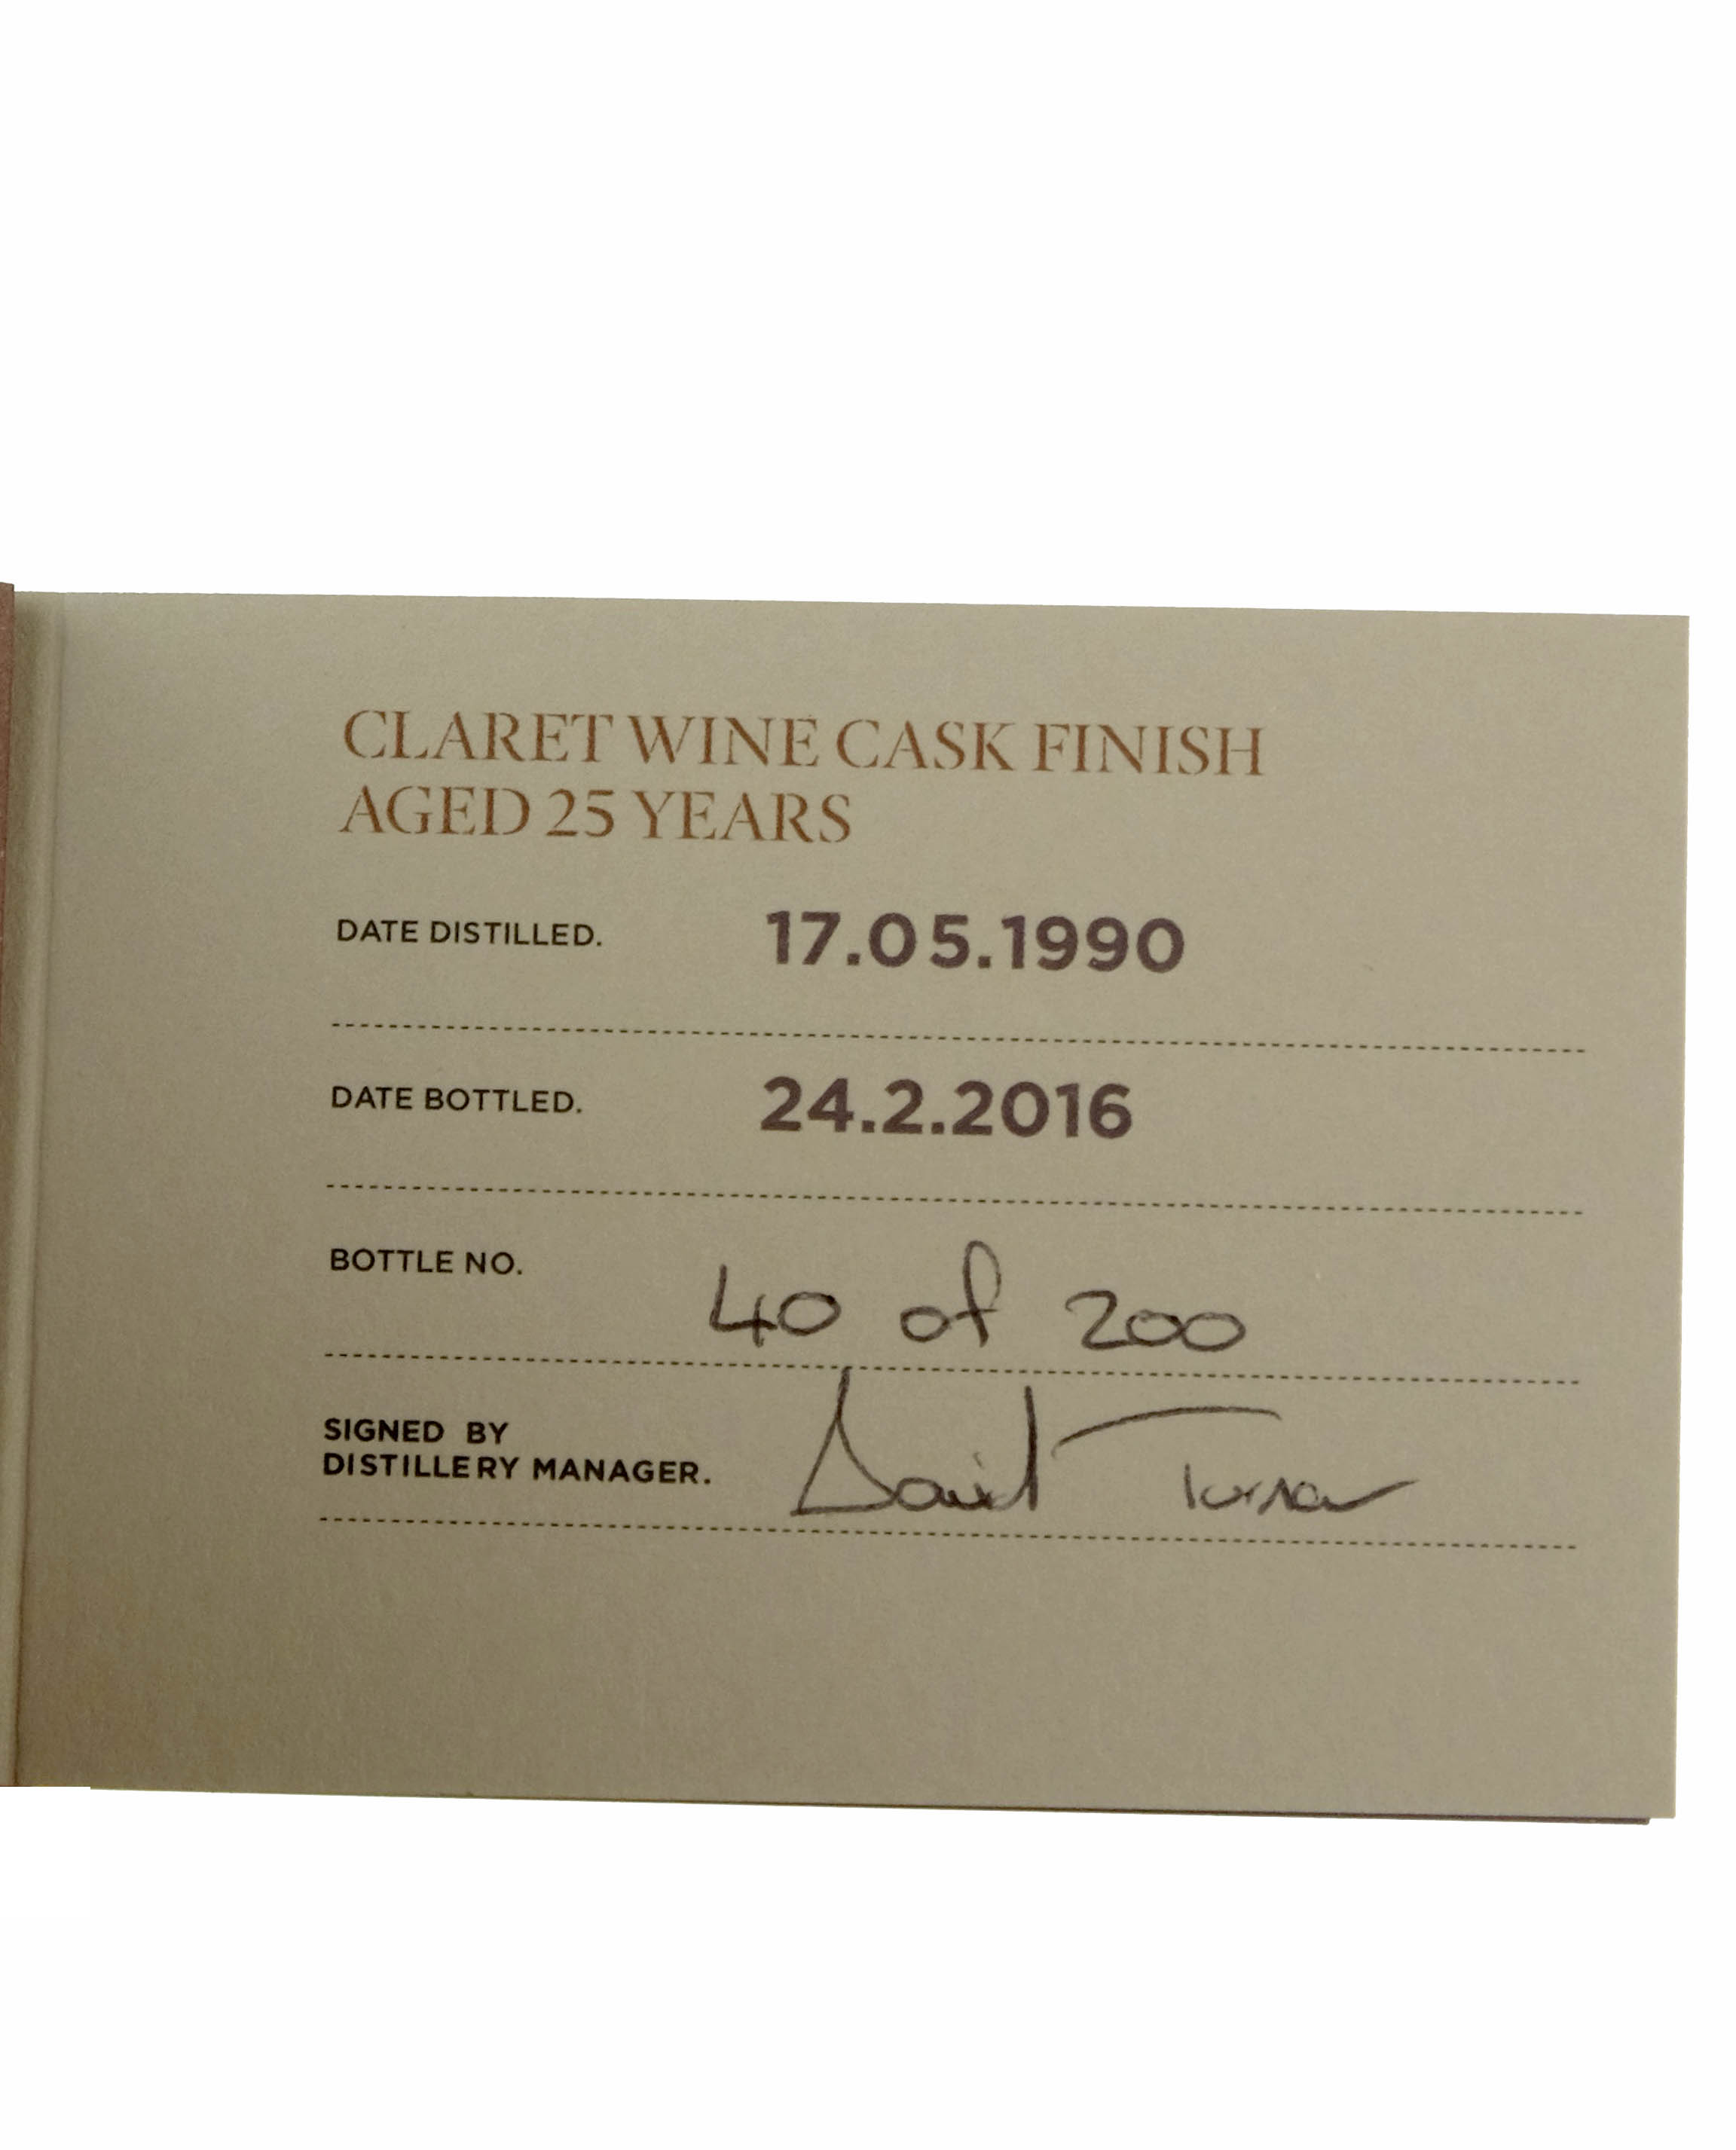 CLARET WINE CASK FINISH
AGED 25 YEARS
DATE DISTILLED. 17.05.1990
DATE BOTTLED. 24.2.2016
BOTTLE NO. 40 of 200
SIGNED BY
DISTILLERY MANAGER. David Turner